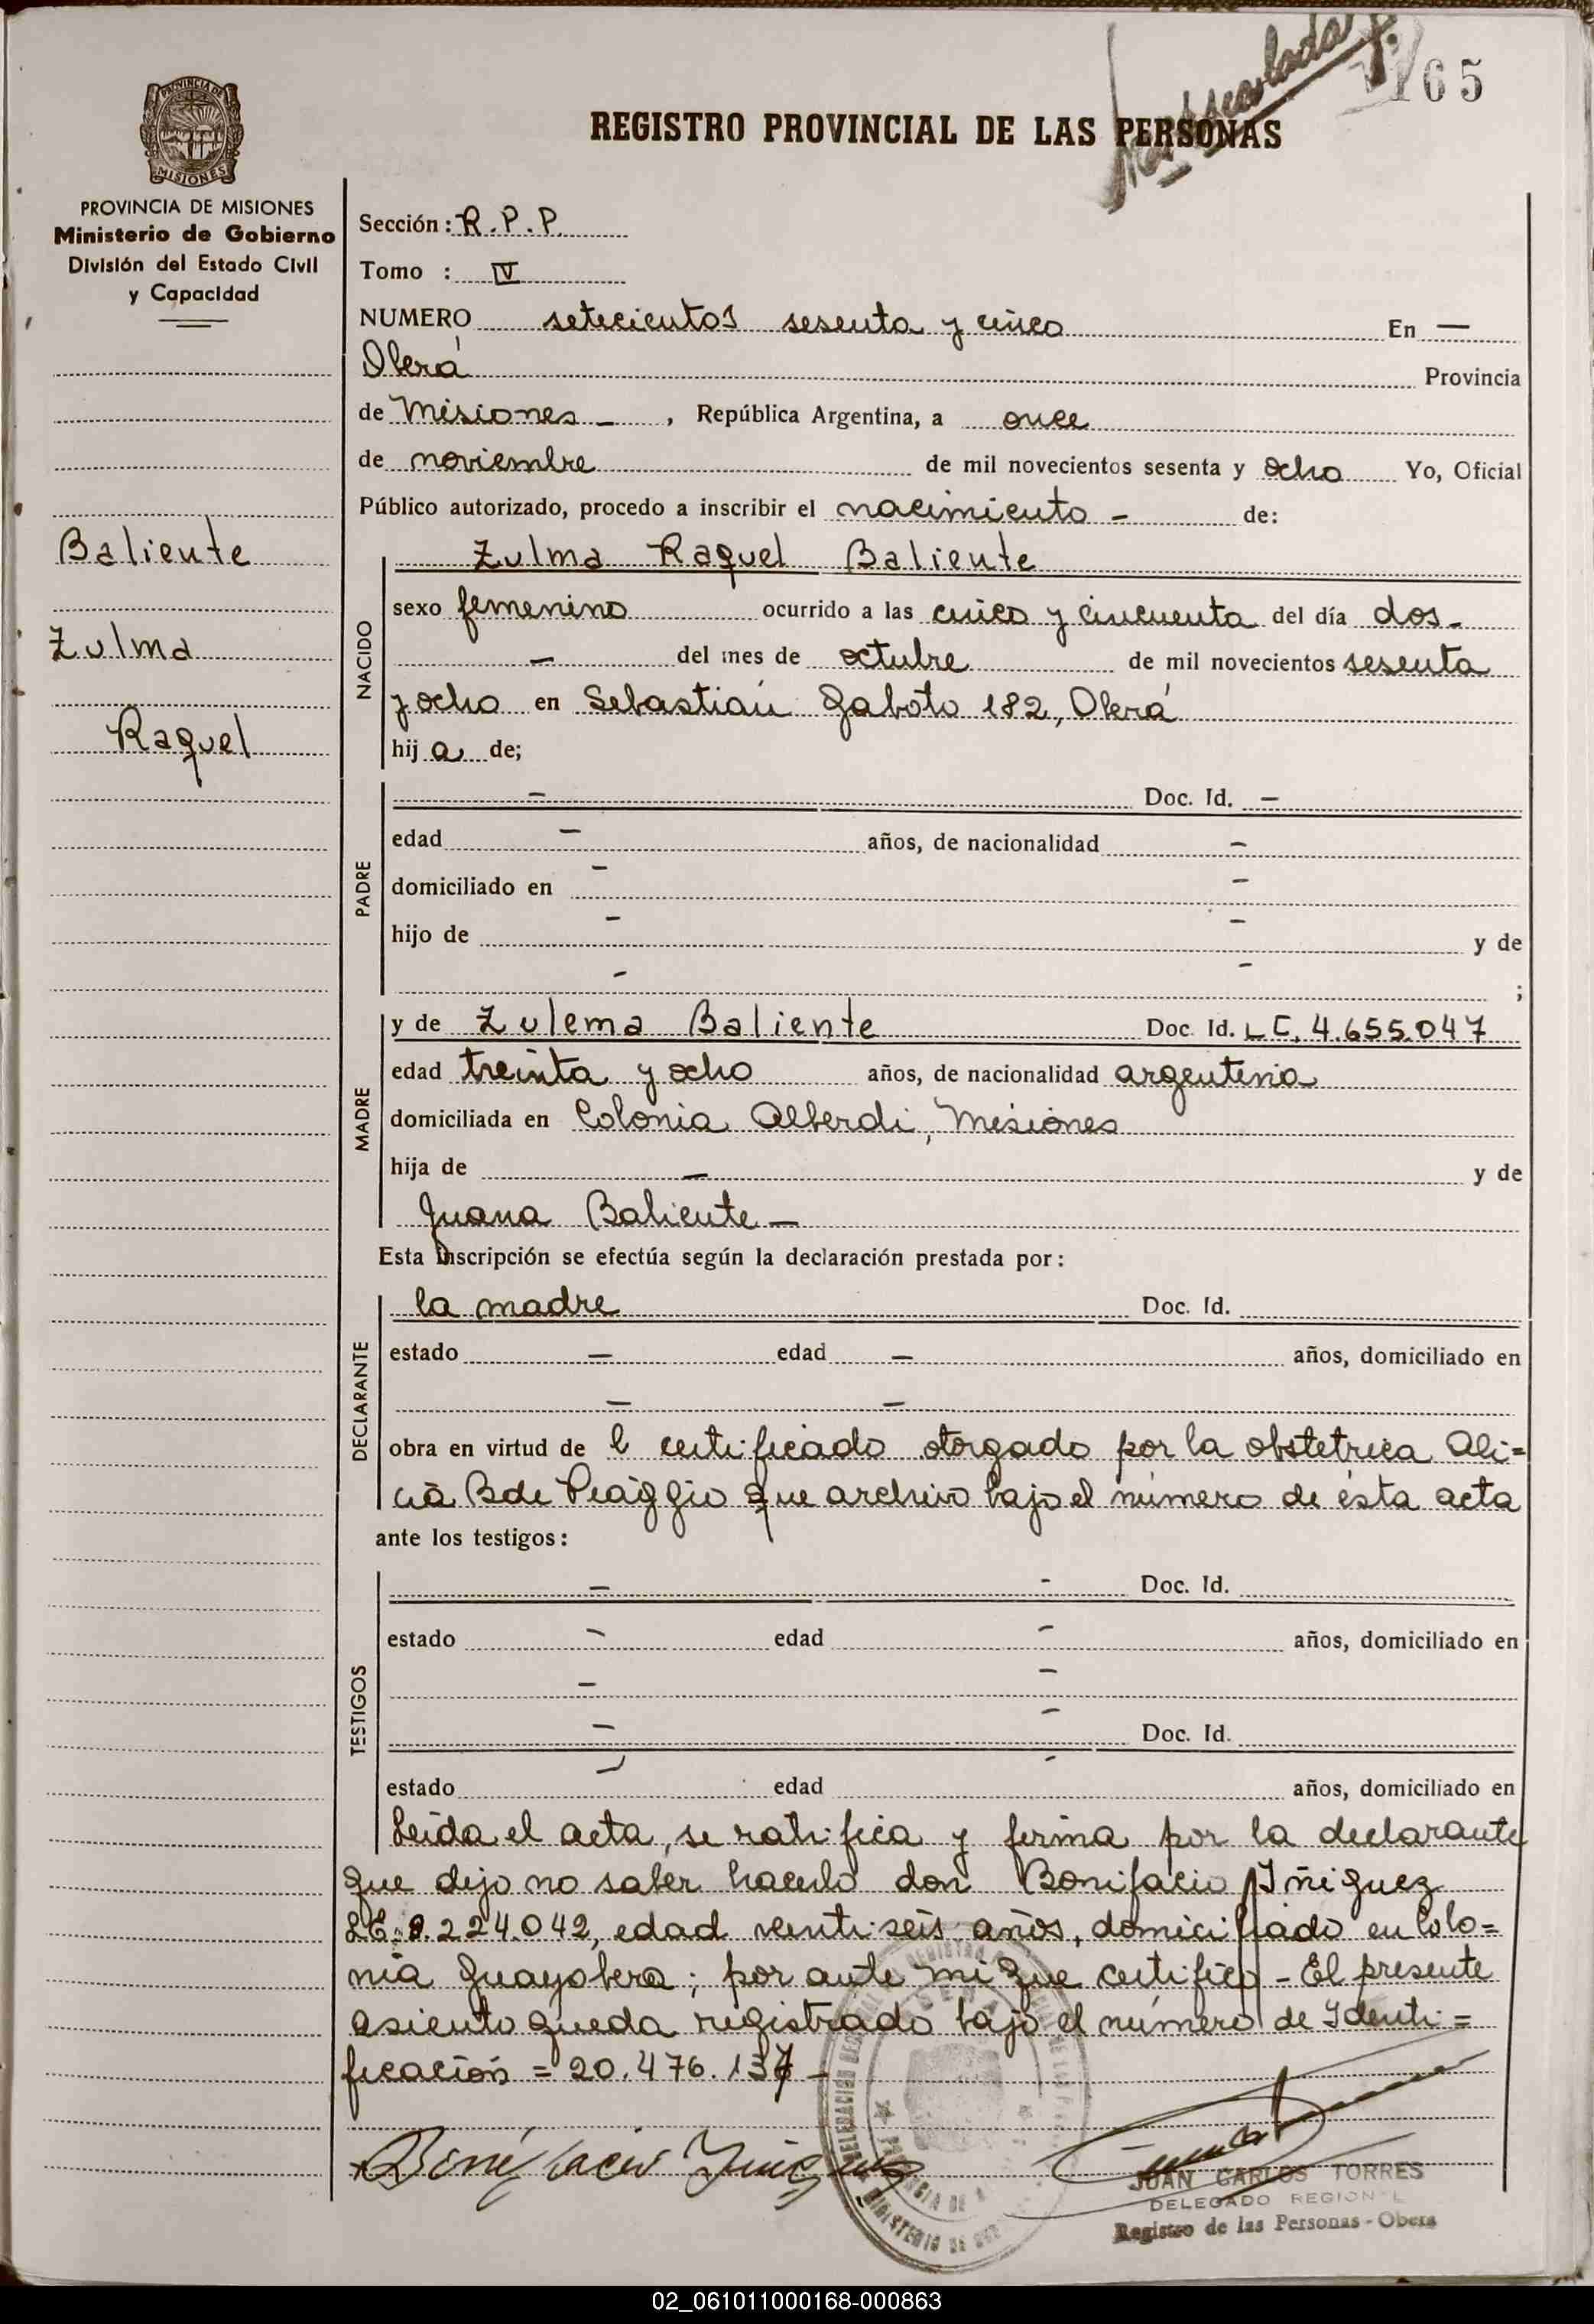 765
REGISTRO PROVINCIAL DE LAS PERSONAS
PROVINCIA DE
MISIONES
PROVINCIA DE MISIONES
Ministerio de Gobierno
División del Estado Civil
y Capacidad
Sección: R.P.P.
Tomo : IV
NUMERO setecientos sesenta y cinco En —
Oberá Provincia
de Misiones — , República Argentina, a once
de noviembre de mil novecientos sesenta y ocho Yo, Oficial
Público autorizado, procedo a inscribir el nacimiento - de:
Baliente
Zulma
Raquel
NACIDO
Zulma Raquel Baliente
sexo femenino ocurrido a las cinco y cincuenta del día dos-
— del mes de octubre de mil novecientos sesenta
y ocho en Sebastian Gaboto 182, Oberá
hij a de;
PADRE
— Doc. Id. —
edad — años, de nacionalidad —
domiciliado en — —
hijo de — — y de
- - ;
MADRE
y de Zulema Baliente Doc. Id. LC. 4.655.047
edad treinta y ocho años, de nacionalidad argentina
domiciliada en Colonia Alberdi, Misiones
hija de — y de
Juana Baliente —
Esta inscripción se efectúa según la declaración prestada por:
DECLARANTE
la madre Doc. Id.
estado — edad — años, domiciliado en
— —
obra en virtud de l certificado otorgado por la obstetrica Ali=
cia B de Peaggio que archivo bajo el número de ésta acta
ante los testigos:
TESTIGOS
— - Doc. Id.
estado - edad - años, domiciliado en
— —
— - Doc. Id.
estado edad años, domiciliado en
Leida el acta, se ratifica y firma por la declarante
que dijo no saber hacerlo don Bonifacio Iñiguez
LE. 8.224.042, edad veintiseis años, domiciliado en Colo=
nia Guayabera; por ante mi que certifico - El presente
asiento queda registrado bajo el número de Identi=
ficación = 20.476.137 -
Bonifacio Iniguez
JUAN CARLOS TORRES
DELEGADO REGIONAL
Registro de las Personas - Obera
02_061011000168-000863